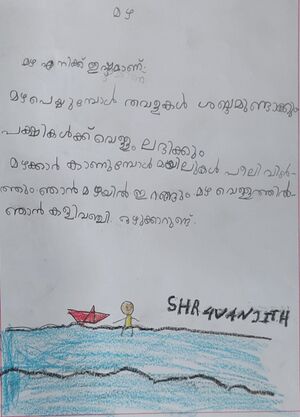 മഴ
മഴ എനിക്ക് ഇഷ്ടമാണ്.
മഴപെയ്യുമ്പോൾ തവളകൾ ശബ്ദമുണ്ടാക്കും
പക്ഷികൾക്ക് വെള്ളം ലഭിക്കും
മഴക്കാർ കാണുമ്പോൾ മയിലുകൾ പീലി വിടർ-
ത്തും ഞാൻ മഴയിൽ ഇറങ്ങും മഴ വെള്ളത്തിൽ-
ഞാൻ കളിവഞ്ചി ഒഴുക്കാറുണ്ട്.
SHRAVANJITH